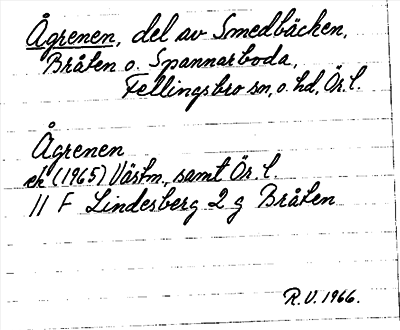 Ågrenen, del av Smedbäcken,
Bråten o. Spannarboda,
Fellingsbro sn, o. hd, Ör. l.
Ågrenen
ek (1965) Västm., samt Ör. l.
11 F Lindesberg 2 g Bråten
R.V. 1966.